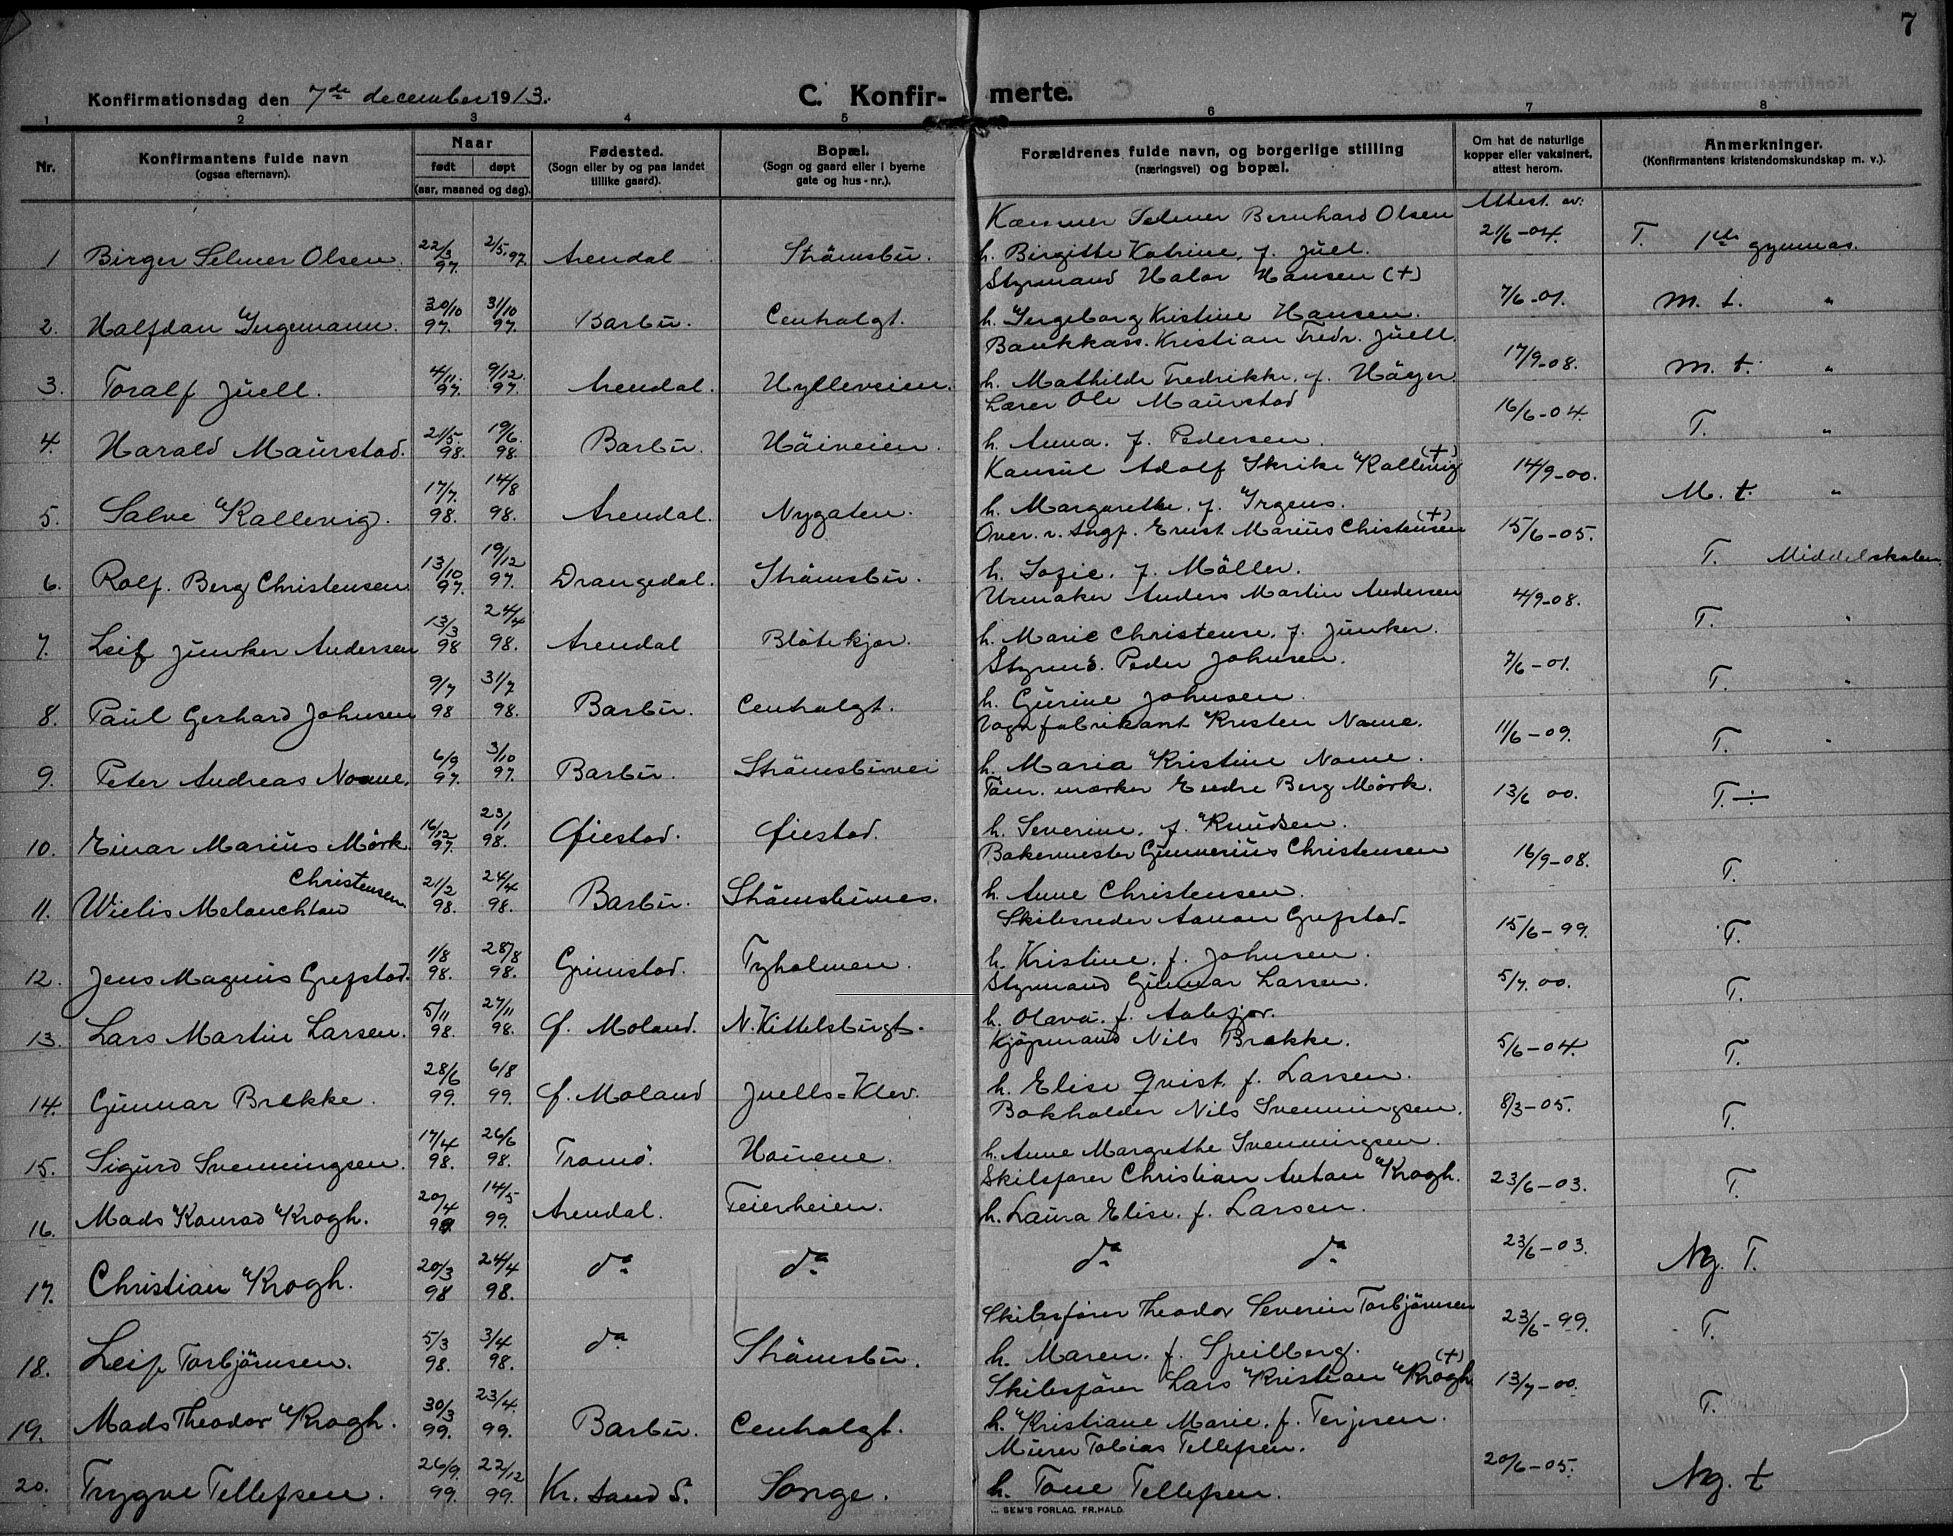 7
Konfirmationsdag den 7de december 1913.
C. Konfirmerte.
1 2 3 4 5 6 7 8
Nr. Konfirmantens fulde navn (ogsaa efternavn). Naar født døpt (aar, maaned og dag). Fødested. (Sogn eller by og paa landet tillike gaard). Bopæl. (Sogn og gaard eller i byerne gate og hus-nr.). Forældrenes fulde navn, og borgerlige stilling (næringsvei) og bopæl. Om hat de naturlige kopper eller vaksinert, attest herom. Anmerkninger. (Konfirmantens kristendomskundskap m. v.).
Attest av:
Kæmner Selmer Bernhard Olsen
1 Birger Selmer Olsen. 22/3 97. 2/5 97. Arendal Strömsbu. h. Birgitte Katrine, f. Juel. 21/6-04. T. 1ste gymnas.
Styrmand Halor Hansen (+)
2. Halfdan Ingemann. 30/10 97. 31/10 97. Barbu. Centralgt. h. Ingeborg Kristine Hansen. 7/6-01. M. t. "
Bankkass. Kristian Fredr. Juell.
3. Toralf Juell. 4/11 97. 9/12 97. Arendal. Hylleveien. h. Mathilde Fredrikke, f. Höyer. 17/9-08. M. t. "
Lærer Ole Maurstad
4. Harald Maurstad. 21/5 98. 19/6 98. Barbu Häiveien. h. Anna. f. Pedersen. 16/6-04 T. "
Konsul Adolf Skrike Kallevig (+)
5. Salve Kallevig. 17/7 98. 14/8 98. Arendal. Nygaten. h. Margarethe. f. Irgens. 14/9-00. M. t. "
Over. r. Sagf. Ernst Marius Christensen (+)
6. Rolf. Berg Christensen 13/10 97. 19/12 97. Drangedal. Strömsbu. h. Sofie. f. Möller. 15/6-05. T. Middelskolen.
Urmaker Anders Martin Andersen
7. Leif Junker Andersen 13/3 98 24/4 98. Arendal Blötekjor. h. Marie Christense. f. Junker. 4/9-08. T. "
Styrmd. Peder Johnsen.
8. Paul Gerhard Johnsen 9/7 98 31/7 98. Barbu. Centralgt. h. Gurine Johnsen. 7/6-01. T. "
Vognfabrikant Kristen Nome.
9. Peter Andreas Nome. 6/9 97. 3/10 97. Barbu. Strömsbuvei h. Maria Kristine Nome. 11/6-09. T. "
Töm. mærker Endre Berg Mörk.
10. Einar Marius Mörk 16/12 97. 23/1 98. Øiestad. Øiestad. h. Severine. f. Knudsen. 13/6 00. T. ÷
Bakermester Gunnerius Christensen
11. Wielis Melanchton Christensen. 21/2 98. 24/4 98. Barbu. Strömsbunes. h. Anne Christensen. 16/9-08. T.
Skibsreder Aanon Grefstad.
12. Jens Magnus Grefstad. 1/8 98. 28/8 98. Grimstad. Tyholmen. h. Kristine. f. Johnsen. 15/6-99. T.
Styrmand Gunnar Larsen.
13. Lars Martin Larsen. 5/11 98. 27/11 98. Ø. Moland. N. Kittelsbugt. h. Olava. f. Aabjor. 5/7. 00. T.
Kjöpmand Nils Brekke.
14. Gunnar Brekke. 28/6 99. 6/8 99. Ø. Moland Juells-Klev. h. Elise Qvist. f. Larsen. 5/6-04. T.
Bokholder Nils Svenningsen.
15. Sigurd Svenningsen. 17/4 98. 26/6 98. Tromö. Havene. h. Anne Margrethe Svenningsen. 8/3-05. T.
Skibsfører Christian Anton Krogh.
16. Mads Konrad Krogh. 20/4 99 14/5 99. Arendal. Feierheien. h. Laura Elise. f. Larsen. 23/6-03. T.
17. Christian Krogh. 20/3 98 24/4 98. do do do do 23/6-03. Ng. T.
Skibsfører Theodor Severin Torbjörnsen
18. Leif Torbjörnsen. 5/3 98. 3/4 98. do Strömsbu. h. Maren. f. Speilberg. 23/6-99. T.
Skibsförer Lars Kristian Krogh (+)
19. Mads Theodor Krogh. 30/3 99. 23/4 99. Barbu. Centralgt. h. Kristiane Marie. f. Terjesen. 13/7-00. T.
Murer Tobias Tellefsen.
20. Trygve Tellefsen. 26/9 99. 22/12 99. Kr. sand S. Songe. h. Tone Tellefsen. 20/6-05. Ng. t
SEM'S FORLAG. FR.HALD.